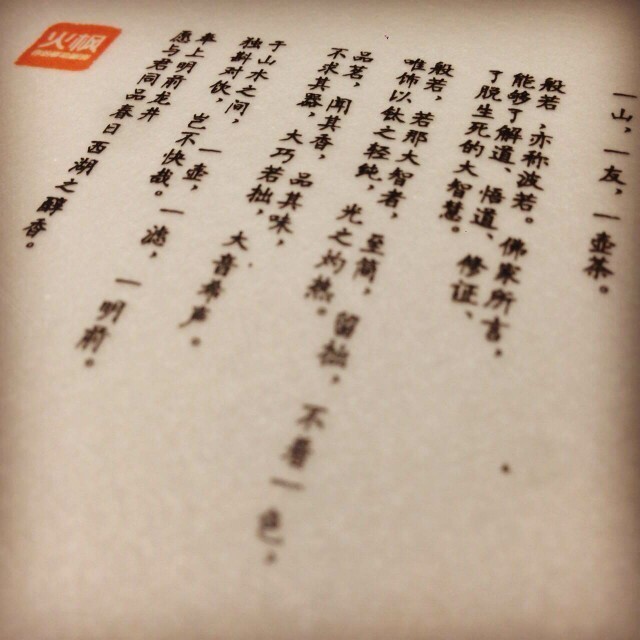 一山，一友，一壶茶。
般若，亦称波若。佛家所言，
能够了解道、悟道、修证、
了脱生死的大智慧。
般若，若那大智者，至简，留拙，不着一色，
唯饰以钛之轻纯，光之灼热。
品茗，闻其香，品其味，大音希声。
不求其器，大巧若拙，
于山水之间，一壶，一滤，一明前。
独斟对饮，岂不快哉。
奉上明前龙井
愿与君同品春日西湖之醇香。
火枫